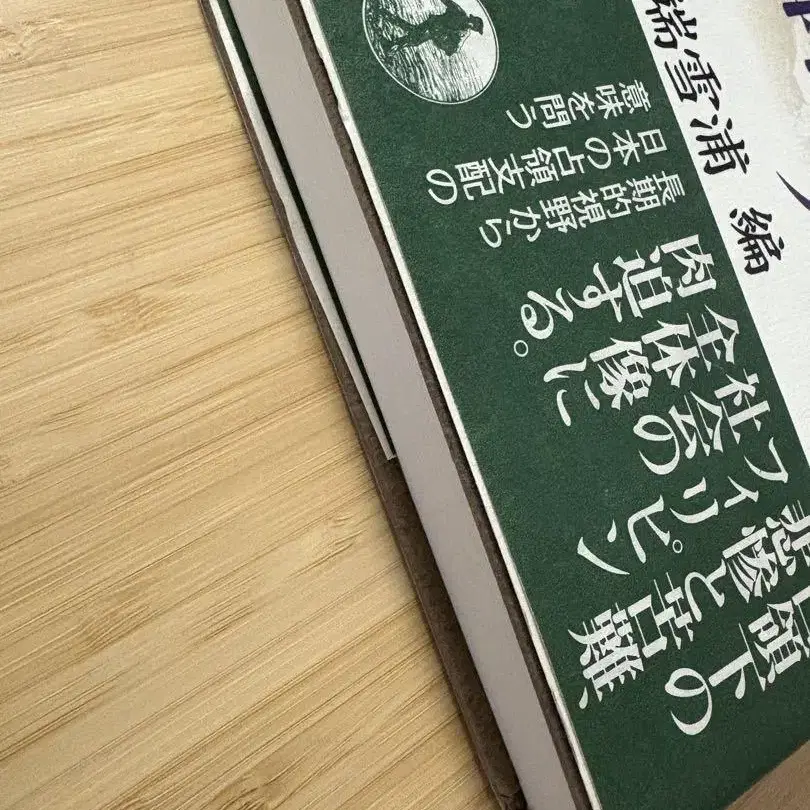 端雪浦 編
領下の
悲惨と苦難、
フィリピン
社会の
全体像に
肉迫する。
長期的視野から
日本の占領支配の
意味を問う